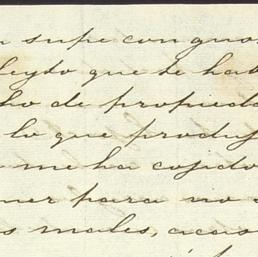 supe con gus
leydo que se hab
ho de propieda
lo que produj
me ha cojido
ner para no s
s males, acas